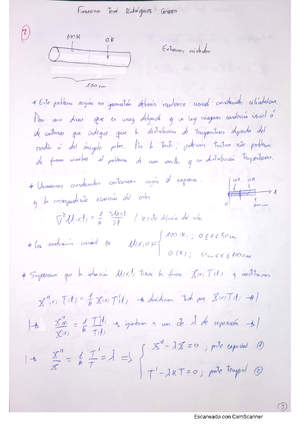 2
100K
0K
Extremos aislados
100cm
* Este problema según su geometría debería resolverse usando coordenadas cilíndricas.
Pero nos dicen que es muy delgada y no hay ninguna condición inicial ó
de contorno que indique que la distribución de temperatura dependa del
radio ó del ángulo polar. Por lo tanto, podemos tratar este problema
de forma similar al problema de una varilla y su distribución Temperatura.
* Usaremos coordenadas cartesianas según el esquema.
y la correspondiente ecuación del calor
∇²U(x,t) = 1/k ∂U(x,t)/∂t / ecuación del calor
* Con condición inicial es U(x,0) = { 100K, 0≤x≤50cm
0(K), 50cm≤x≤100cm
* Suponemos que la solución U(x,t) tiene la forma X(x)·T(t) y sustituimos
X''(x) T(t) = 1/k X(x) T'(t) → dividimos todo por X(x)·T(t) →
X''(x)/X(x) = 1/k T'(t)/T(t) → igualamos a una cte λ de separación →
X''/X = 1/k T'/T = λ ⇒ { X'' - λX = 0 ; parte espacial
T' - λKT = 0 ; parte Temporal
Escaneado con CamScanner